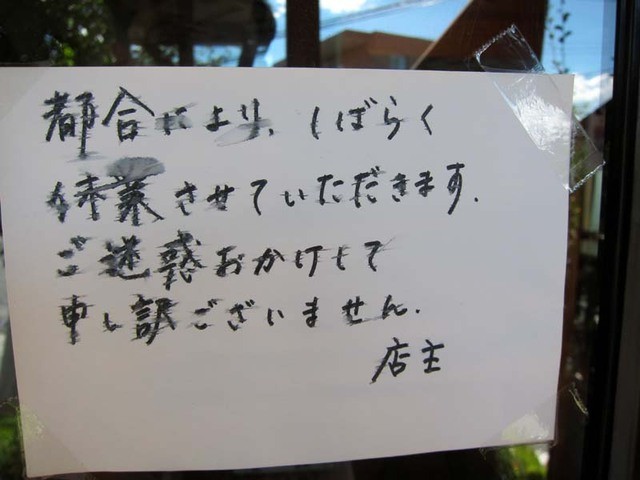 都合により、しばらく
休業させていただきます.
ご迷惑おかけして
申し訳ございません.
店主